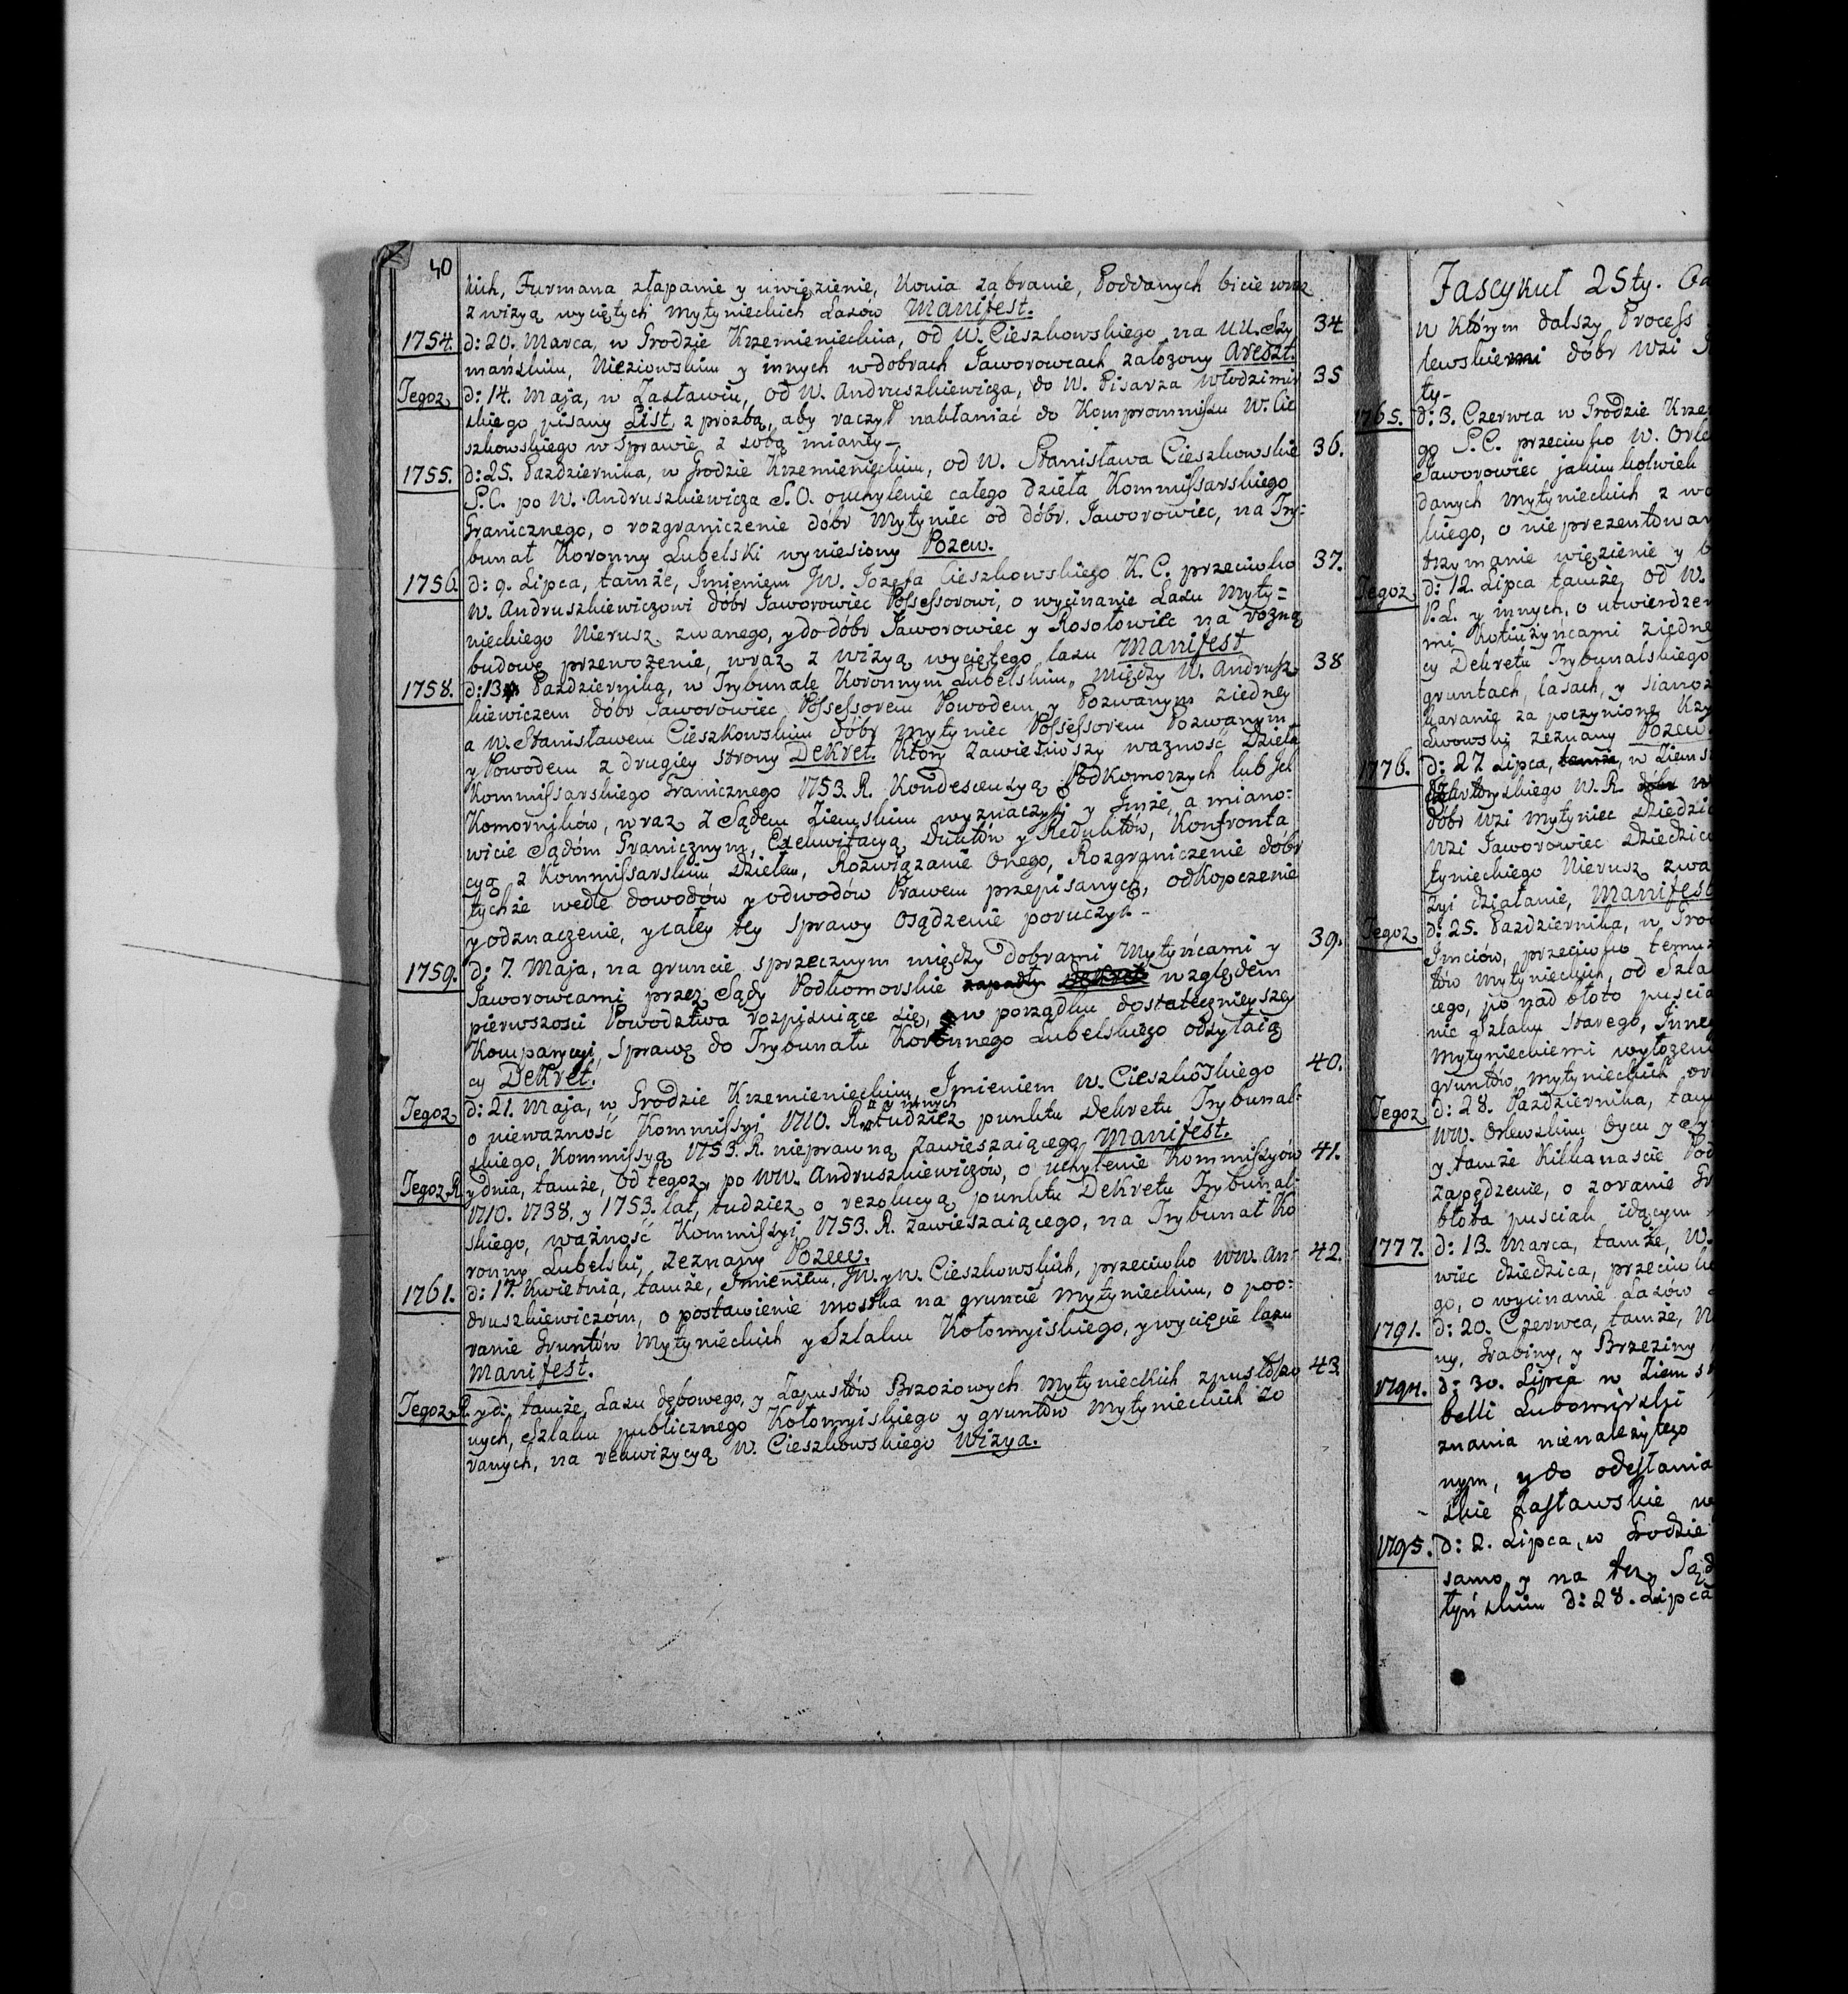 40
kich, Furmana złapanie y uwięzienie, Konia zabranie, Poddanych bicie wraz
z wizyą wyciętych Mytynieckich Lasów Manifest.
1754. d: 20. Marca, w Grodzie Krzemienieckim, od W. Cieszkowskiego na UU. Szy 34.
mańskim, Nieziowskim y innych w dobrach Jaworowcach założony Areszt.
Tegoz d: 14. Maja, w Zasławiu, od W. Andruszkiewicza, do W. Pisarza Włodzimir 35
skiego pisany List, z prozbą, aby raczył nakłaniać do Komprommissu W. Cie
szkowskiego w Sprawie z sobą mianey-
1755. d: 25. Pazdziernika, w Grodzie Krzemienieckim, od W. Stanisława Cieszkowskie 36.
S.C. po W. Andruszkiewicza S.O. o uchylenie całego dzieła Kommissarskiego
Granicznego, o rozgraniczenie dóbr Mytyniec od dóbr Jaworowiec, na Try=
bunał Koronny Lubelski wyniesiony Pozew.
1756. d: 9. Lipca, tamże, Imieniem JW. Jozefa Cieszkowskiego K. C. przeciwko 37.
W. Andruszkiewiczowi dóbr Jaworowiec Possessorowi, o wycinanie Lasu Myty=
nieckiego Nierusz zwanego, y do dóbr Jaworowiec y Rosołowiec na rozną
budowę przewożenie, wraz z wizyą wyciętego lasu Manifest
1758. d: 13 Pazdziernika, w Trybunale Koronnym Lubelskim, między W. Andrusz 38
kiewiczem dóbr Jaworowiec Possessorem Powodem y Pozwanym ziedney
a W. Stanisławem Cieszkowskim dóbr Mytyniec Possessorem Pozwanym
y Powodem z drugiey strony Dekret. Który zawiesiwszy ważność Dzieła
Kommissarskiego Granicznego 1753. R. Kondescenzyą Podkomorzych lub Jch
Komorników, wraz z Sądem Ziemskim wyznaczył y Jmże, a miano=
wicie Sądóm Granicznym, Exekwitacyą Duktów y Reduktów, Konfronta
cyą z Kommissarskim Dziełem, Rozwiązanie Onego, Rozgraniczenie dóbr
tychże wedle dowodów y odwodów Prawem przepisanych, odkopczenie
y odznaczenie, y całey tey sprawy Osądzenie poruczył-
1759. d: 7. Maja, na gruncie sprzecznym między Dobrami Mytyńcami y 39.
Jaworowcami przez Sądy Podkomorskie zapadły Dekret względem
pierwszosci Powodztwa rozpisuiące się, w porządku dostatecznieyszey
Komparycyi, Sprawę do Trybunału Koronnego Lubelskiego odsyłaią
cy Dekret.
Tegoz d: 21. Maja, w Grodzie Krzemienieckim Imieniem W. Cieszkowskiego 40.
y innych
o nieważność Kommissyi 1710. R. tudziez punktu Dekretu Trybunal=
skiego, Kommissyą 1753. R. nieprawną zawieszaiącego Manifest.
Tegoz R. y dnia, tamże, od tegoz, po WW. Andruszkiewiczów, o uchylenie Kommissyów 41.
1710. 1738. y 1753. lat, tudziez o rezolucyą punktu Dekretu Trybunal=
skiego, ważność Kommissyi 1753. R. zawieszaiącego, na Trybunał Ko
ronny Lubelski, zeznany Pozew.
1761. d: 17. Kwietnia, tamże, Imieniem JW. y W. Cieszkowskich, przeciwko WW. An= 42.
druszkiewiczóm, o postawienie mostka na gruncie Mytynieckim, o poo=
ranie Gruntów Mytynieckich y Szlaku Kołomyiskiego, y wycięcie lasu
Manifest.
Tegoz R. y d: tamże, Lasu dębowego, y Zapustów Brzozowych Mytynieckich zpustoszo 43.
nych, Szlaku publicznego Kołomyiskiego y gruntów Mytynieckich zo
ranych, na rekwizycyą W. Cieszkowskiego Wizya.
Fascykuł 25ty.
w Którym dalszy Process
lewskiemi dóbr Wsi
ty-
1765. d: 3. Czerwca w Grodzie Krze
go S.C. przeciwko W. Orle
Jaworowiec jakimkolwiek
danych Mytynieckich z
kiego, o nieprezentowan
trzymanie więzienie y
Tegoz d: 12. Lipca tamże, od W.
P.L. y innych, o utwierdzen
mi Kotiużyńcami ziedne
cy Dekretu Trybunalskiego
gruntach, lasach, y sianoz
karanie za poczynione Krzy
Lwowski zeznany Pozew
1776. d: 27. Lipca, tamże, w Ziems
skiego W. R. dóbr
dóbr Wsi Mytyniec Dziedzi
Wsi Jaworowiec Dziedzic
tynieckiego Nierusz zwa
działanie, Manifest
Tegoz d: 25. Pazdziernika, w Gro
Jmciów, przeciwko temuz
tów Mytynieckich, od Szla
cego, po nad błoto puscia
nie Szlaku Starego, Inneg
Mytynieckiemi wyłożeni
gruntów Mytynieckich or
Tegoz d: 28. Pazdziernika, tam
WW. Orlewskim Oycu y Sy
y tamże Kilkanascie Pod
zapędzenie, o zoranie Gr
błota pusciak idącym
1777. d: 13. Marca, tamże, W.
wiec dziedzica, przeciwko
go, o wycinanie Lasów
1791. d: 20. Czerwca, tamże,
ny, Grabiny, y Brzeziny
1794. d: 30. Lipca w Ziems
belli Lubomirski
znania nienależytego
nym, y do odesłania
skie Zasławskie
1795. d: 2. Lipca, w Grodzie
samo y na ten Sąd
tyńskim d: 28. Lipca